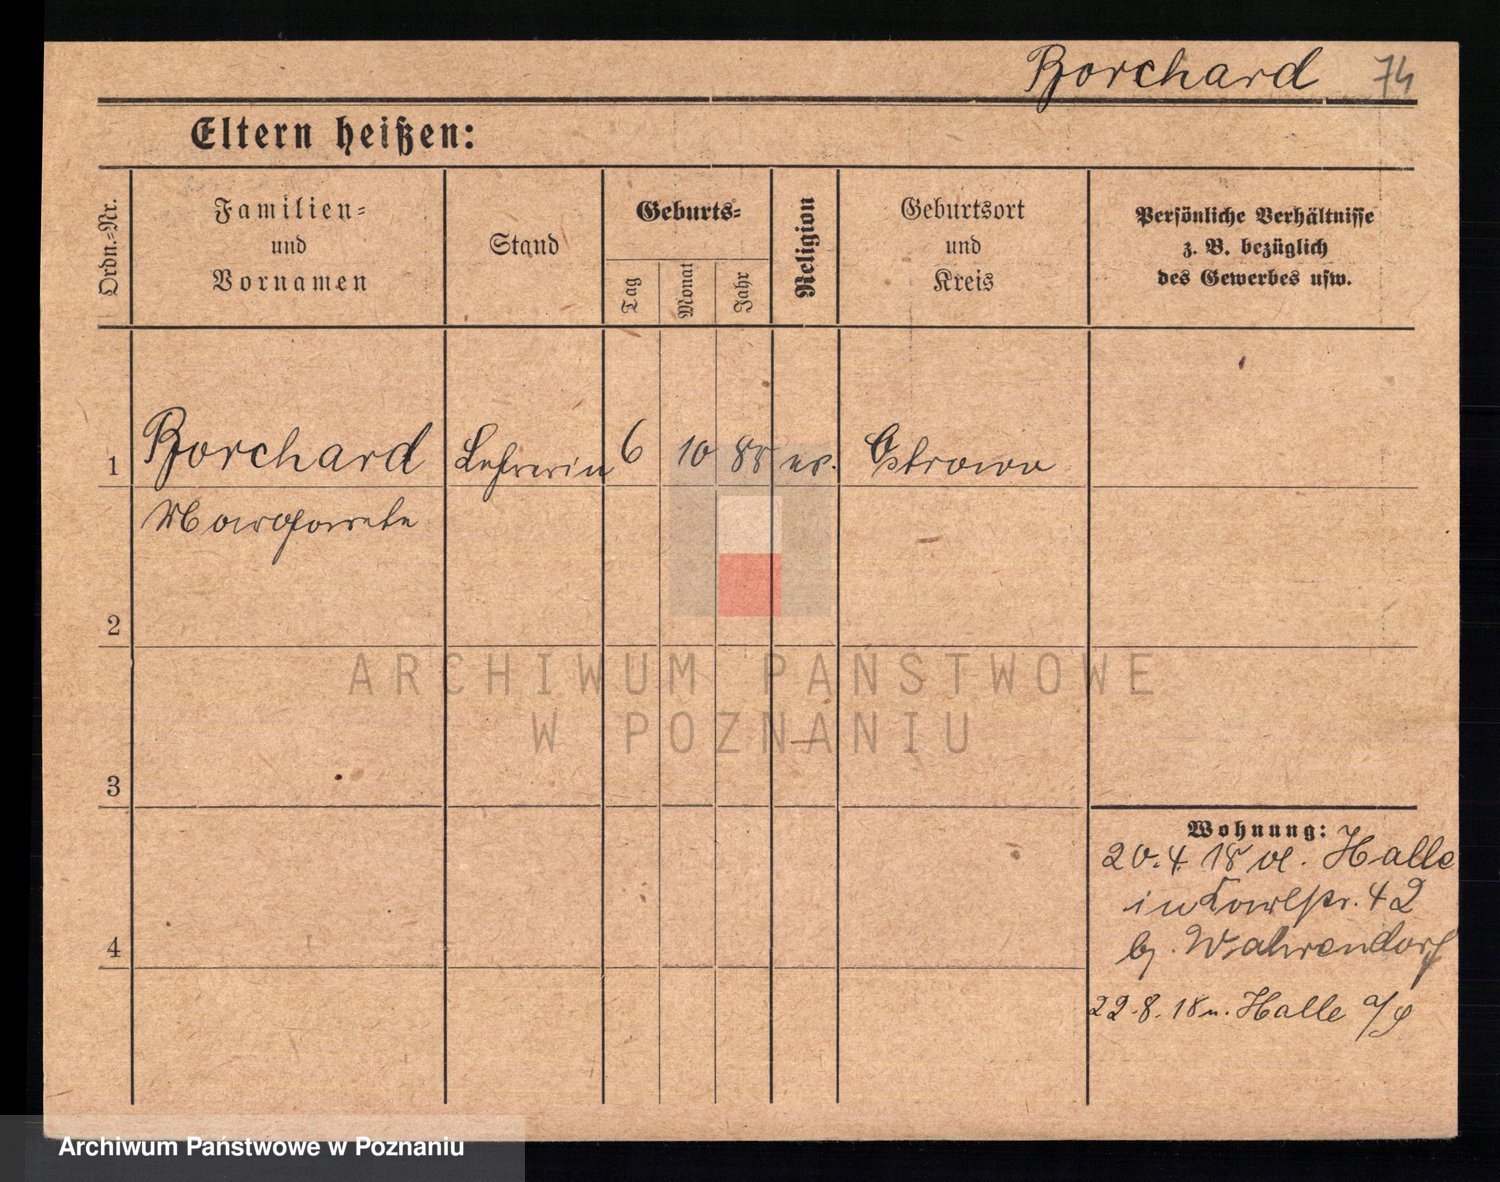 Borchard 74
Eltern heißen:
Ordn.-Nr.
Familien-
und
Vornamen
Stand
Geburts-
Tag
Monat
Jahr
Religion
Geburtsort
und
Kreis
Persönliche Verhältnisse
z. B. bezüglich
des Gewerbes usw.
1 Borchard Lehrerin 6 10 88 ev. Ostrowo
Margarete
2
3
4
Wohnung:
20.4.18 Halle
in Karlstr. 42
b. Wahrendorf
22.8.18 n. Halle a/S
ARCHIWUM PAŃSTWOWE
W POZNANIU
Archiwum Państwowe w Poznaniu